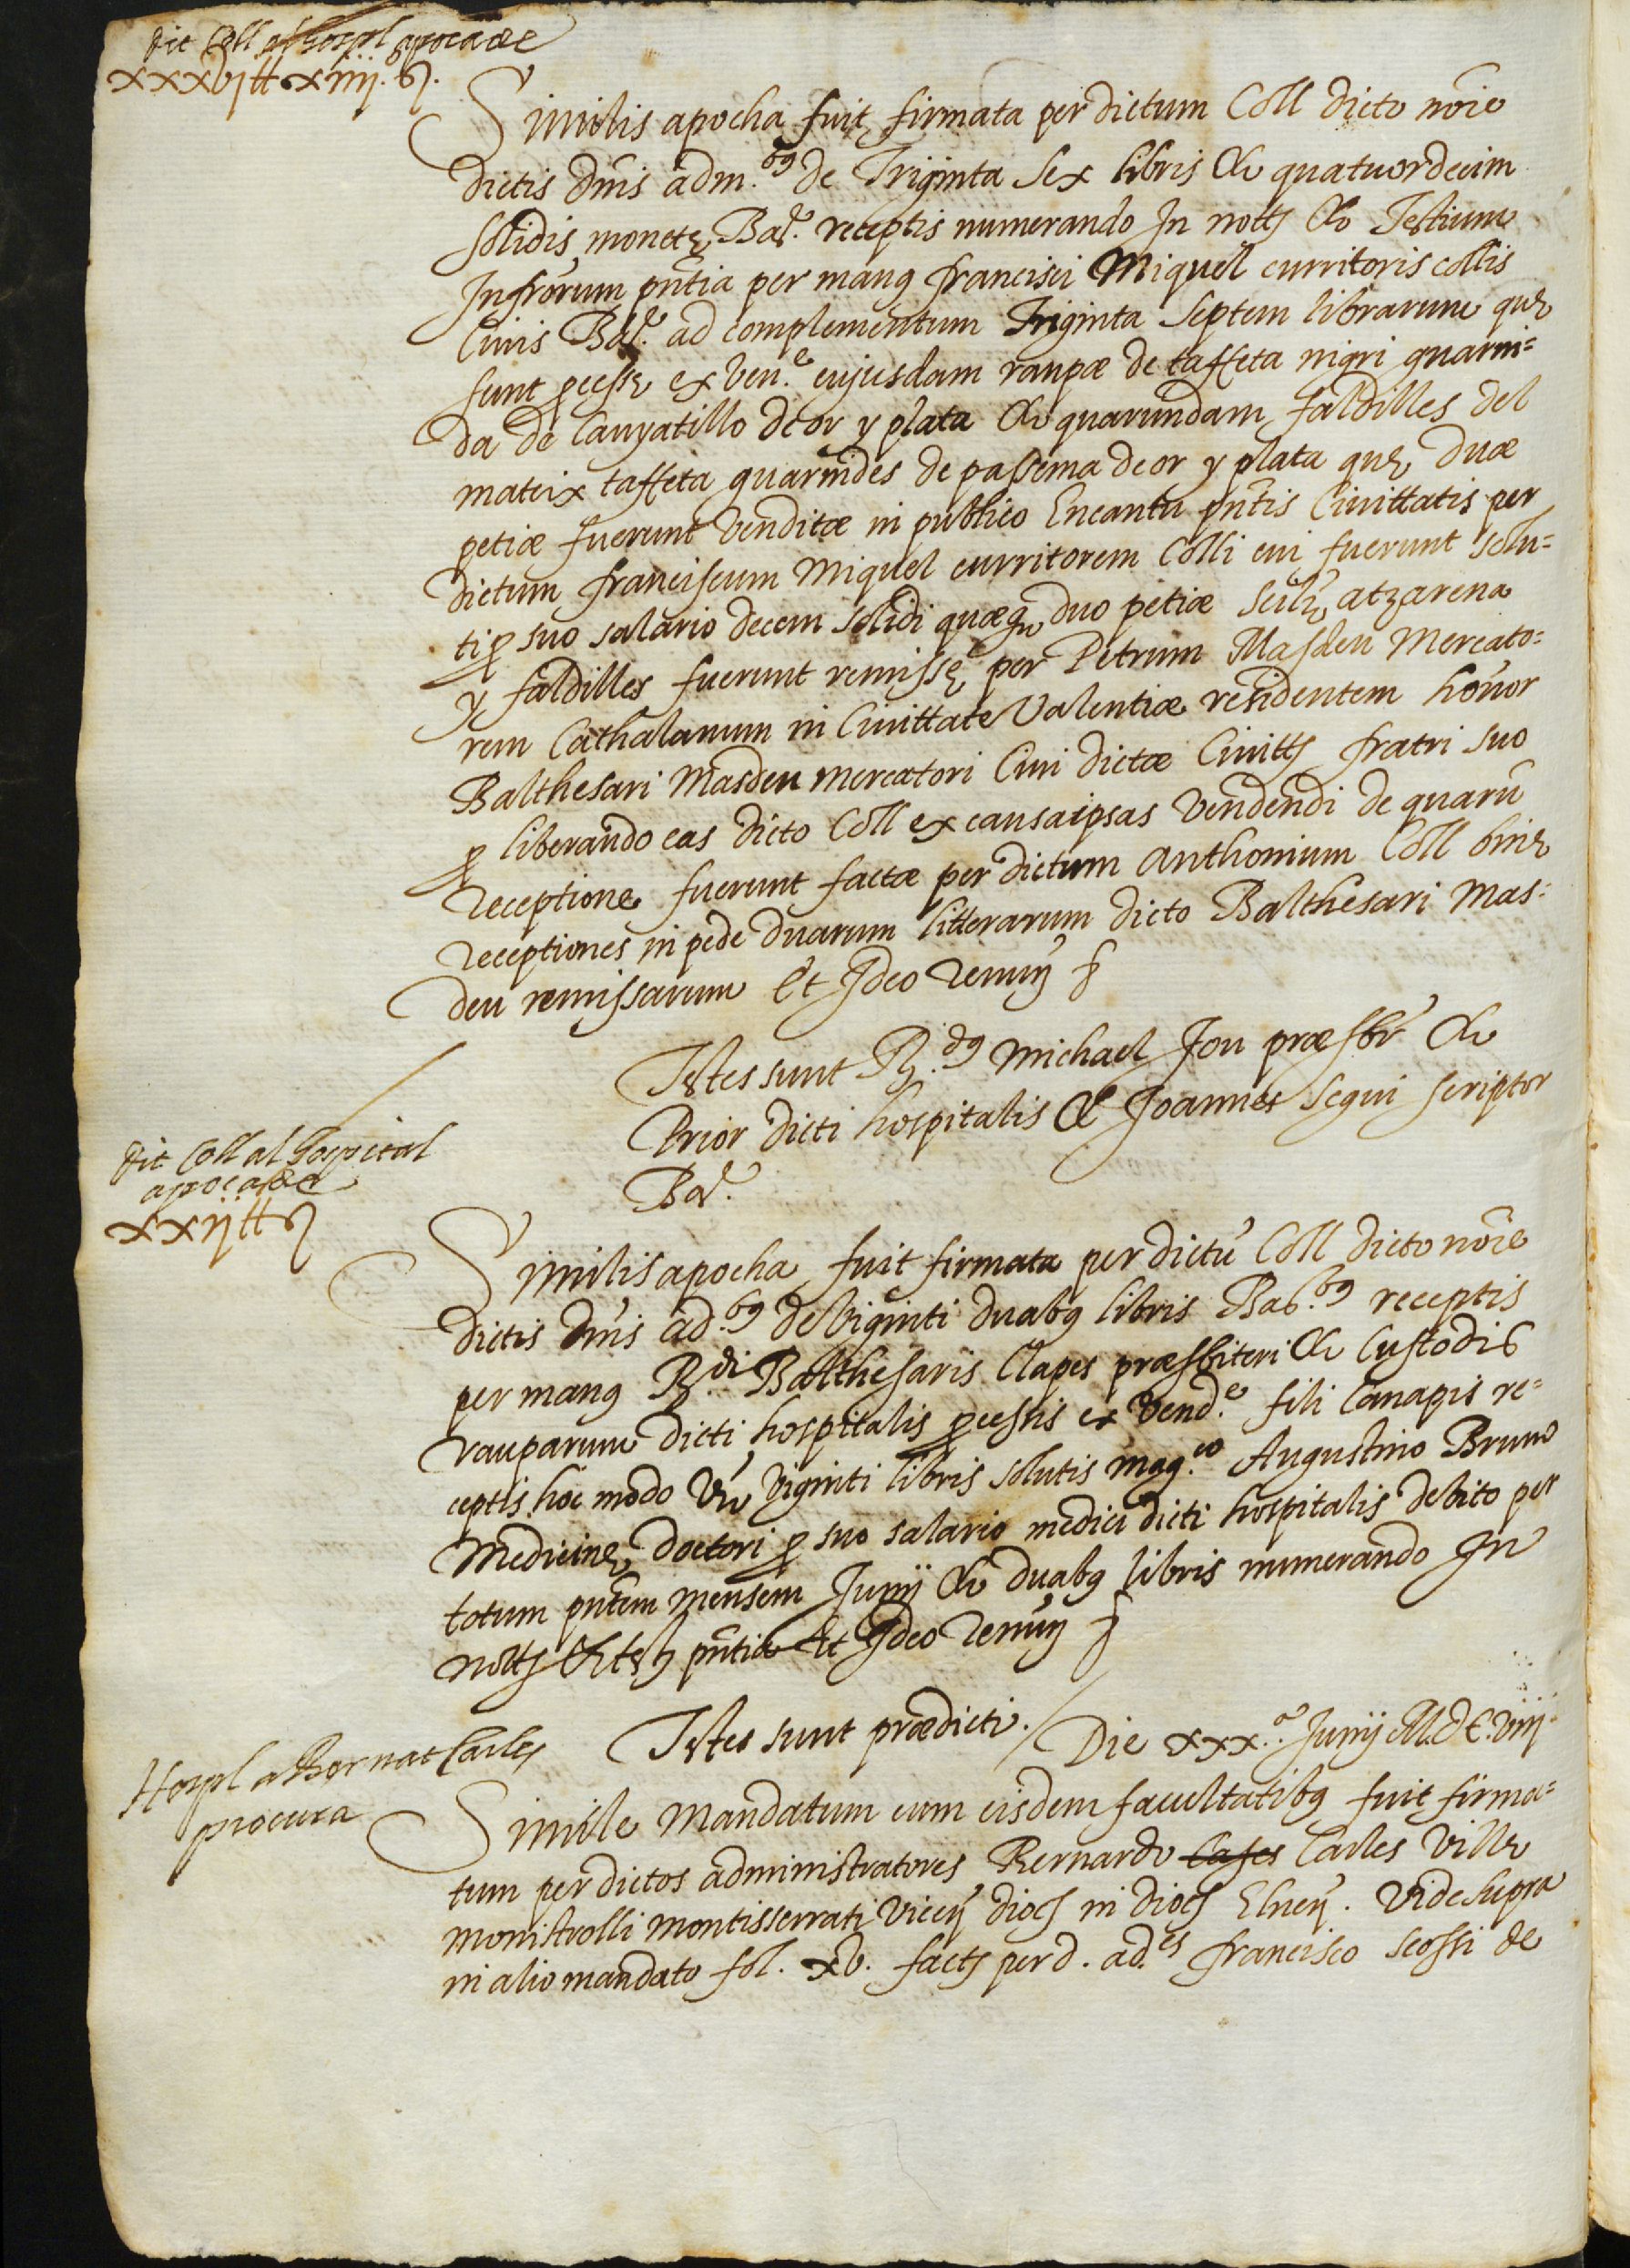 Dit Coll al hospl apocade
xxxvj tt xiiij. s.
Similis apocha fuit firmata per dictum Coll dicto noīe
dictis dnīs adm.bꝯ de Triginta Sex libris & quatuordecim
solidis monetę Bar.e receptis numerando In notȷ & Testium
Infrōrum pn̄tia per manꝯ francisci Miquel curritoris collis
Civis Bar.e ad complementum Triginta Septem librarum quę
sunt ꝓcessę ex ven.e cujusdam raupæ de taffeta nigri guarni=
da de Canyatillo de or y plata & quarundam faldilles del
mateix taffeta guarnides de passema de or y plata quę duæ
petiæ fuerunt venditæ in publico Encantu pn̄tis Civittatis per
dictum franciscum Miquel curritorem Colli cui fuerunt solu=
ti ꝓ suo salario decem solidi quæqꝫ duo petiæ scilꝫ atzarena
y faldilles fuerunt remissę per Petrum Masdeu Mercato=
rem Cathalanum in Civittate Valentiæ residentem honor
Balthesari Masdeu mercatori Civi dictæ Civittȷ fratri suo
ꝓ liberando eas dicto Coll ex causa ipsas vendendi de quarū
receptione fuerunt factæ per dictum Anthonium Coll binę
receptiones in pede duarum litterarum dicto Balthesari Mas=
deu remissarum Et Ideo renuñ &
Testes sunt R.dꝯ Michael Jou præsbr̄ &
Prior dicti hospitalis & Joannes Segui scriptor
Bar.e
Dit Coll al hospital
apoca de
xxij tt s
Similis apocha fuit firmata per dictū Coll dicto noīe
dictis dnīs ad.bꝯ de viginti duabꝯ libris Bar.bꝯ receptis
per manꝯ R.di Balthesaris Clapes præsbiteri & Custodis
rauparum dicti hospitalis ꝓcessis ex vend.e fili Canapis re=
ceptis hoc modo Vꝫ viginti libris solutis mag.co Augustino Bruno
Medicinę doctori ꝓ suo salario medici dicti hospitalis debito per
totum pn̄tem mensem Junij & duabꝯ libris numerando In
notȷ & testȷ pn̄tia Et Ideo renuñ &
Testes sunt prædicti.
Die xxx.a Junij M.D C. viiij
Hospl a Bernat Carles
procura
Simile Mandatum cum eisdem facultatibꝯ fuit firma=
tum per dictos administratores Bernardo Cases Carles Villę
Monistrolli Montisserrati Viceñ diocȷ in diocȷ Elneñ. Vide supra
in alio mandato fol. xv. factȷ per d. ad.es francisco scossi de